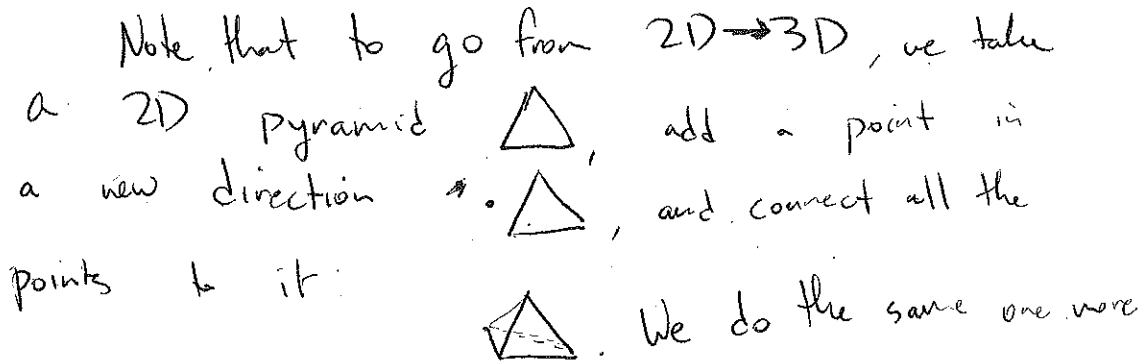 Note that to go from 2D→3D, we take
a 2D pyramid , add a point in
a new direction , and connect all the
points to it: . We do the same one more